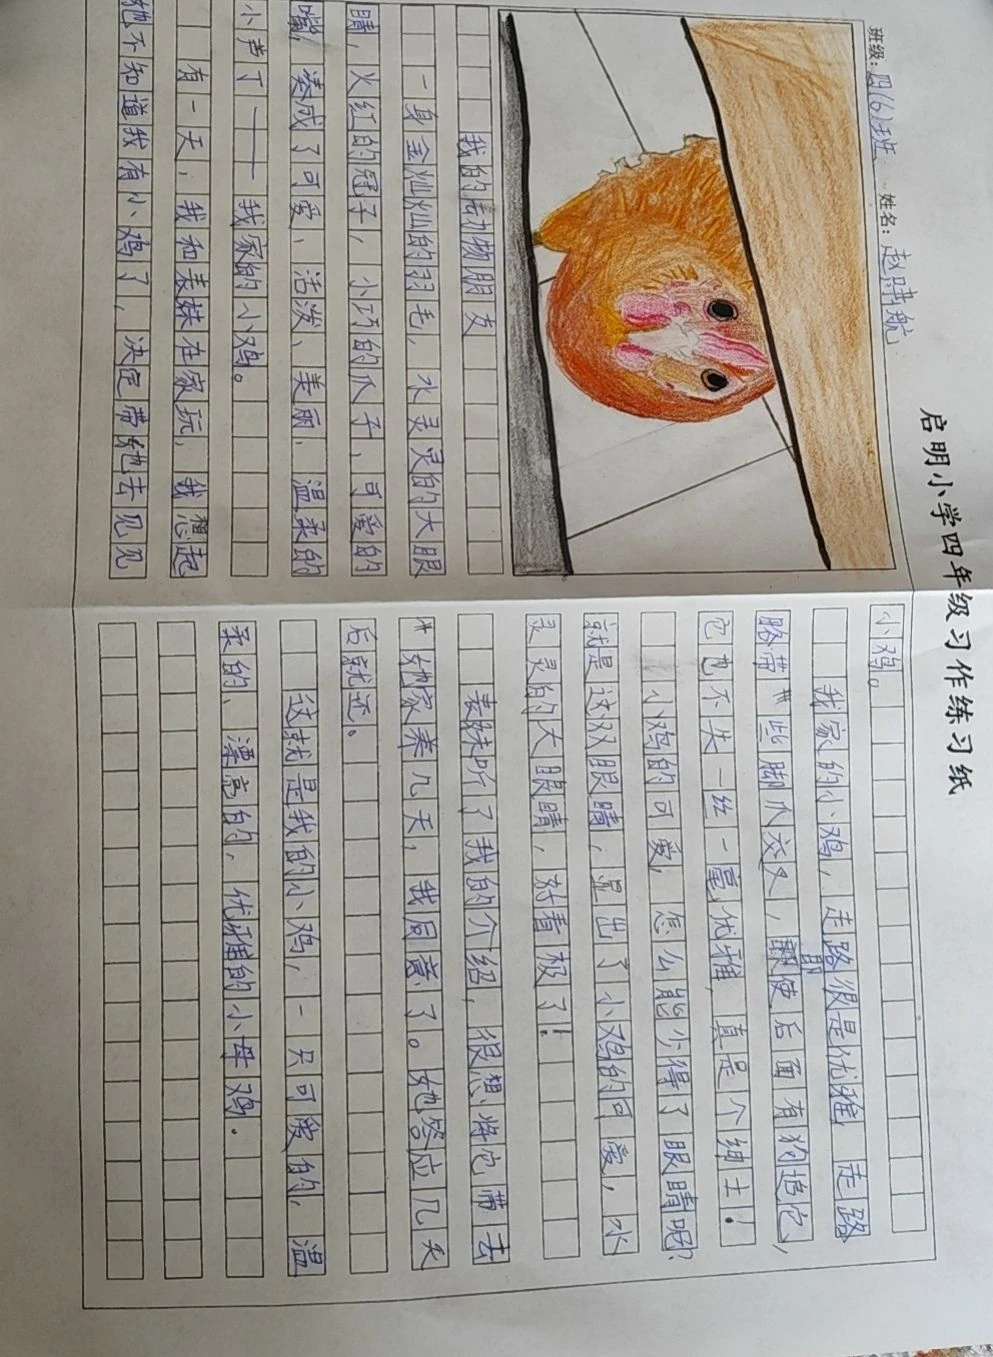 启明小学四年级习作练习纸
班级：四(6)班 姓名：赵晴航
我的动物朋友
一身金灿灿的羽毛，水灵灵的大眼
睛，火红的冠子，小巧的爪子，可爱的
嘴，凑成了可爱、活泼、美丽、温柔的
小芦丁——我家的小鸡。
有一天，我和表妹在家玩，我想起
她不知道我有小鸡了，决定带她去见见
小鸡。
我家的小鸡，走路很是优雅，走路
胳带些脚爪交叉，即使后面有狗追它，
它也不失一丝一毫优雅，真是个绅士！
小鸡的可爱，怎么能少得了眼睛呢？
就是这双眼睛，显出了小鸡的可爱，水
灵灵的大眼睛，好看极了！
表妹听了我的介绍，很想将它带去
她家养几天，我同意了。她答应几天
后就还。
这就是我的小鸡，一只可爱的，温
柔的、漂亮的，优雅的小母鸡.